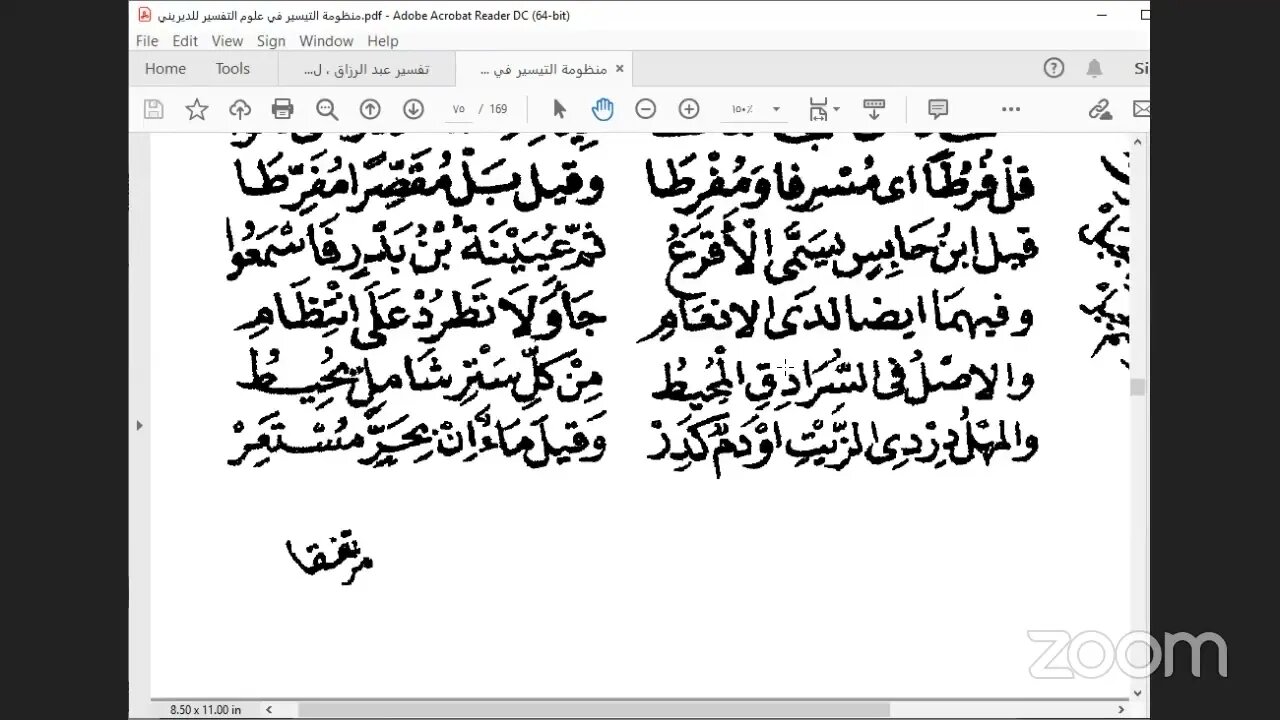 منظومة التيسير في علوم التفسير للديريني.pdf - Adobe Acrobat Reader DC (64-bit)
File Edit View Sign Window Help
Home Tools تفسير عبد الرزاق ، ل... منظومة التيسير في ...
٧٥ / 169 ١٥٠٪
قُلْ فُرُطًا اى مُسْرِفا وَمُفْرِطَا وقيل بَلْ مُقَصِّرًا مُفَرِّطَا
قيل ابنُ حَابِسٍ يسَمَّى الْأَقْرَعُ ثمّ عُيَيْنَةُ بْنُ بَدْرٍ فَاسْمَعُوا
وفيهمَا ايضا لدَى الانعَامِ جَا وَلَا تَطْرُدْ عَلَى انْتِظَامِ
والاصْلُ فى السُّرَادِقِ الْمُحِيطُ مِنْ كلِّ سَتْرٍ شَامِلٍ يُحِيطُ
والمهْلُ دِرْدِى الزَّيْتِ اوْ دَمٌ كَدِرْ وَقيلَ مَاءٌ انْ بِحَرٍّ مُسْتَعِرْ
مرتفقا
8.50 x 11.00 in
zoom